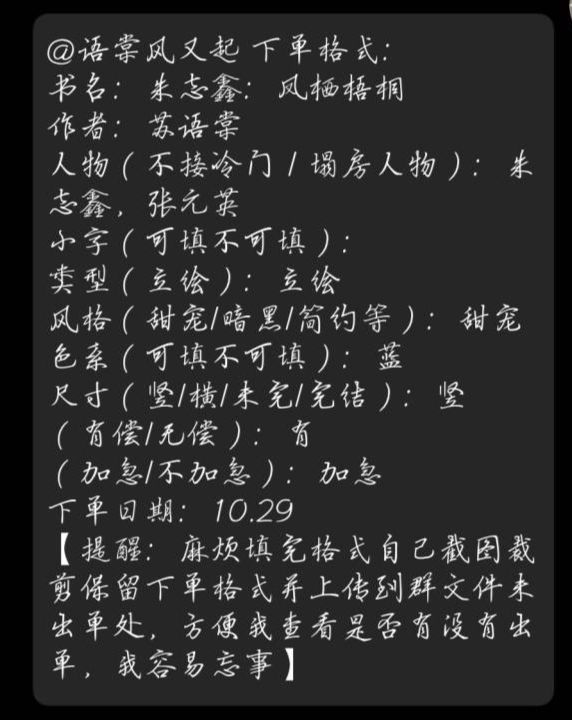 @语棠风又起 下单格式:
书名: 朱志鑫: 风栖梧桐
作者: 苏语棠
人物（不接冷门 / 塌房人物）: 朱
志鑫, 张元英
小字（可填不可填）:
类型（立绘）: 立绘
风格（甜宠/暗黑/简约等）: 甜宠
色系（可填不可填）: 蓝
尺寸（竖/横/未完/完结）: 竖
（有偿/无偿）: 有
（加急/不加急）: 加急
下单日期: 10.29
【提醒: 麻烦填完格式自己截图裁
剪保留下单格式并上传到群文件未
出单处, 方便我查看是否有没有出
单, 我容易忘事】